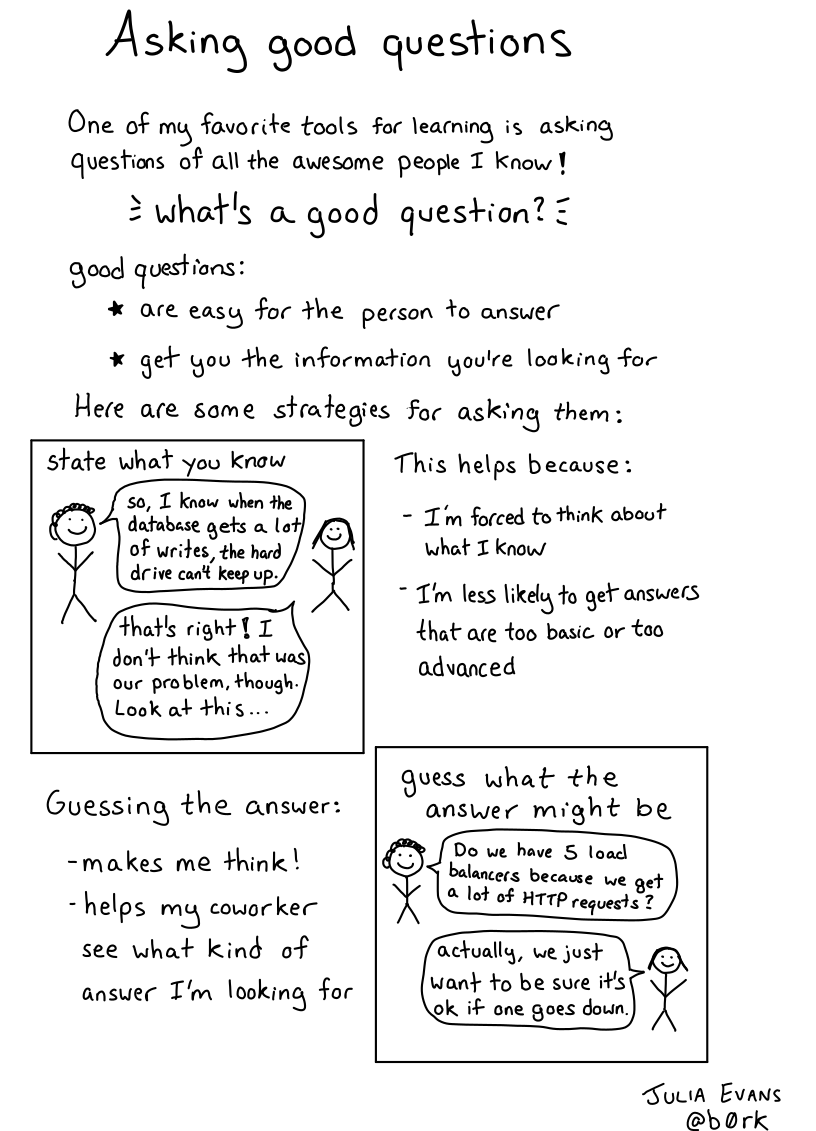 Asking good questions
One of my favorite tools for learning is asking
questions of all the awesome people I know!
what's a good question?
good questions:
★ are easy for the person to answer
★ get you the information you're looking for
Here are some strategies for asking them:
state what you know
so, I know when the
database gets a lot
of writes, the hard
drive can't keep up.
that's right! I
don't think that was
our problem, though.
Look at this...
This helps because:
- I'm forced to think about
what I know
- I'm less likely to get answers
that are too basic or too
advanced
Guessing the answer:
- makes me think!
- helps my coworker
see what kind of
answer I'm looking for
guess what the
answer might be
Do we have 5 load
balancers because we get
a lot of HTTP requests?
actually, we just
want to be sure it's
ok if one goes down.
JULIA EVANS
@b0rk